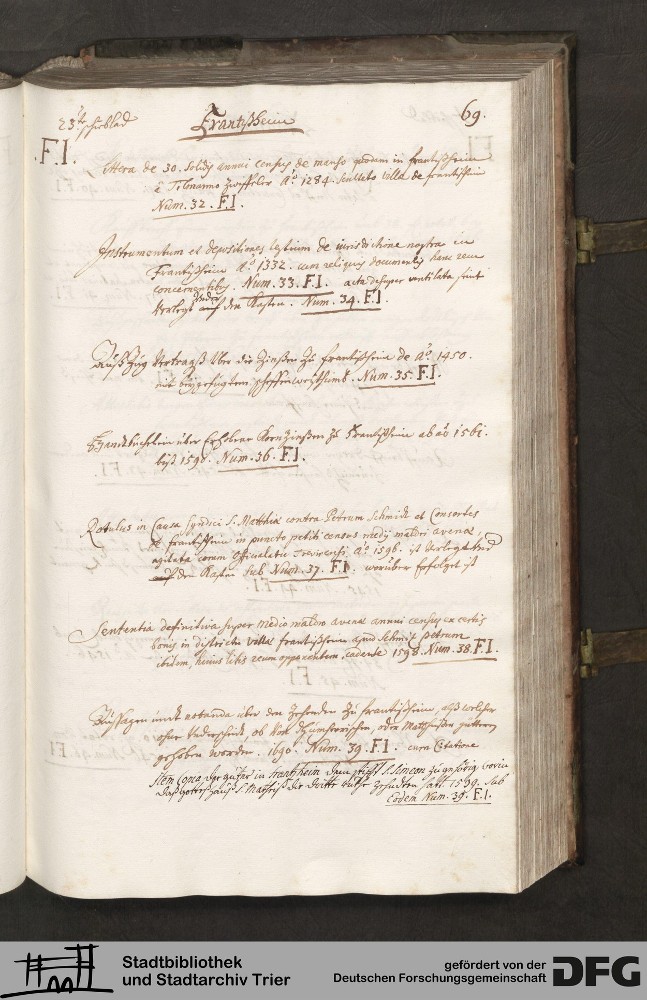 23te schublad Frantzheim 69.
F.I.
littera de 30. solidis annui census de manso quodam in frantzheim
a Tilmanno Zwiffeler Ao. 1284. sculteto villae de frantzheim
Num. 32. F.I.
Instrumentum et depositiones testium de iurisdictione nostra in
Frantzheim Ao. 1332. cum reliquis documentis hanc rem
concernentibus. Num. 33. F.I. acta desuper ventilata seint
verlegt under auf den Kasten. Num. 34. F.I.
Außzug Vertragß über die Zinßen zu frantzheim de Ao. 1450.
mit beygefügtem scheffenweisthumb. Num. 35. F.I.
Handtbüchlein über Erhobene Kornzinßen zu Frantzheim ab ao 1561.
biß 1598. Num. 36. F.I.
Rotulus in Causa Syndici S. Matthiae contra Petrum Schmidt et Consortes
zu frantzheim in puncto petiti census medii maldri avenae,
agitata coram Officialatu Trevirensi Ao. 1596. ist verlegt und
auf den Kasten sub Num. 37. F.I. worüber erfolget ist
Sententia definitiva super medio maldro avenae annui census ex certis
bonis in districtu villae frantzheim apud Schmit petrum
ibidem, huius litis reum opponentem, cadente 1598. Num. 38. F.I.
Außsagen undt notanda über den Zehenden zu frantzheim, auß welcher
ohne Underschiedt, ob von Simeonischen, oder Matheisen güttern
gehoben worden. 1690. Num. 39. F.I. cum Citatione
Item Copia der güter in frantzheim dem stifft S. Simeon zugehörig worin
daß gotteshauß S. Mattheiß die dritte zehenden hatt. 1539. sub
Eodem Num. 39. F.I.
Stadtbibliothek
und Stadtarchiv Trier
gefördert von der
Deutschen Forschungsgemeinschaft
DFG